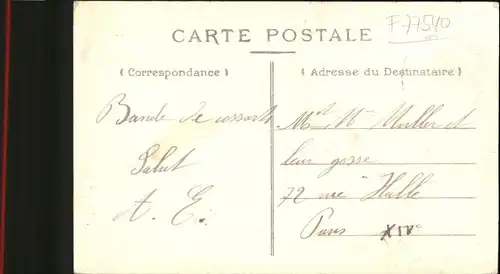 F-77540
CARTE POSTALE
(Correspondance)
(Adresse du Destinataire)
Bande de cossards
Salut
A. E.
Mr et Mme Muller et
leur gosse
72 rue "Hallé
Paris XIVe